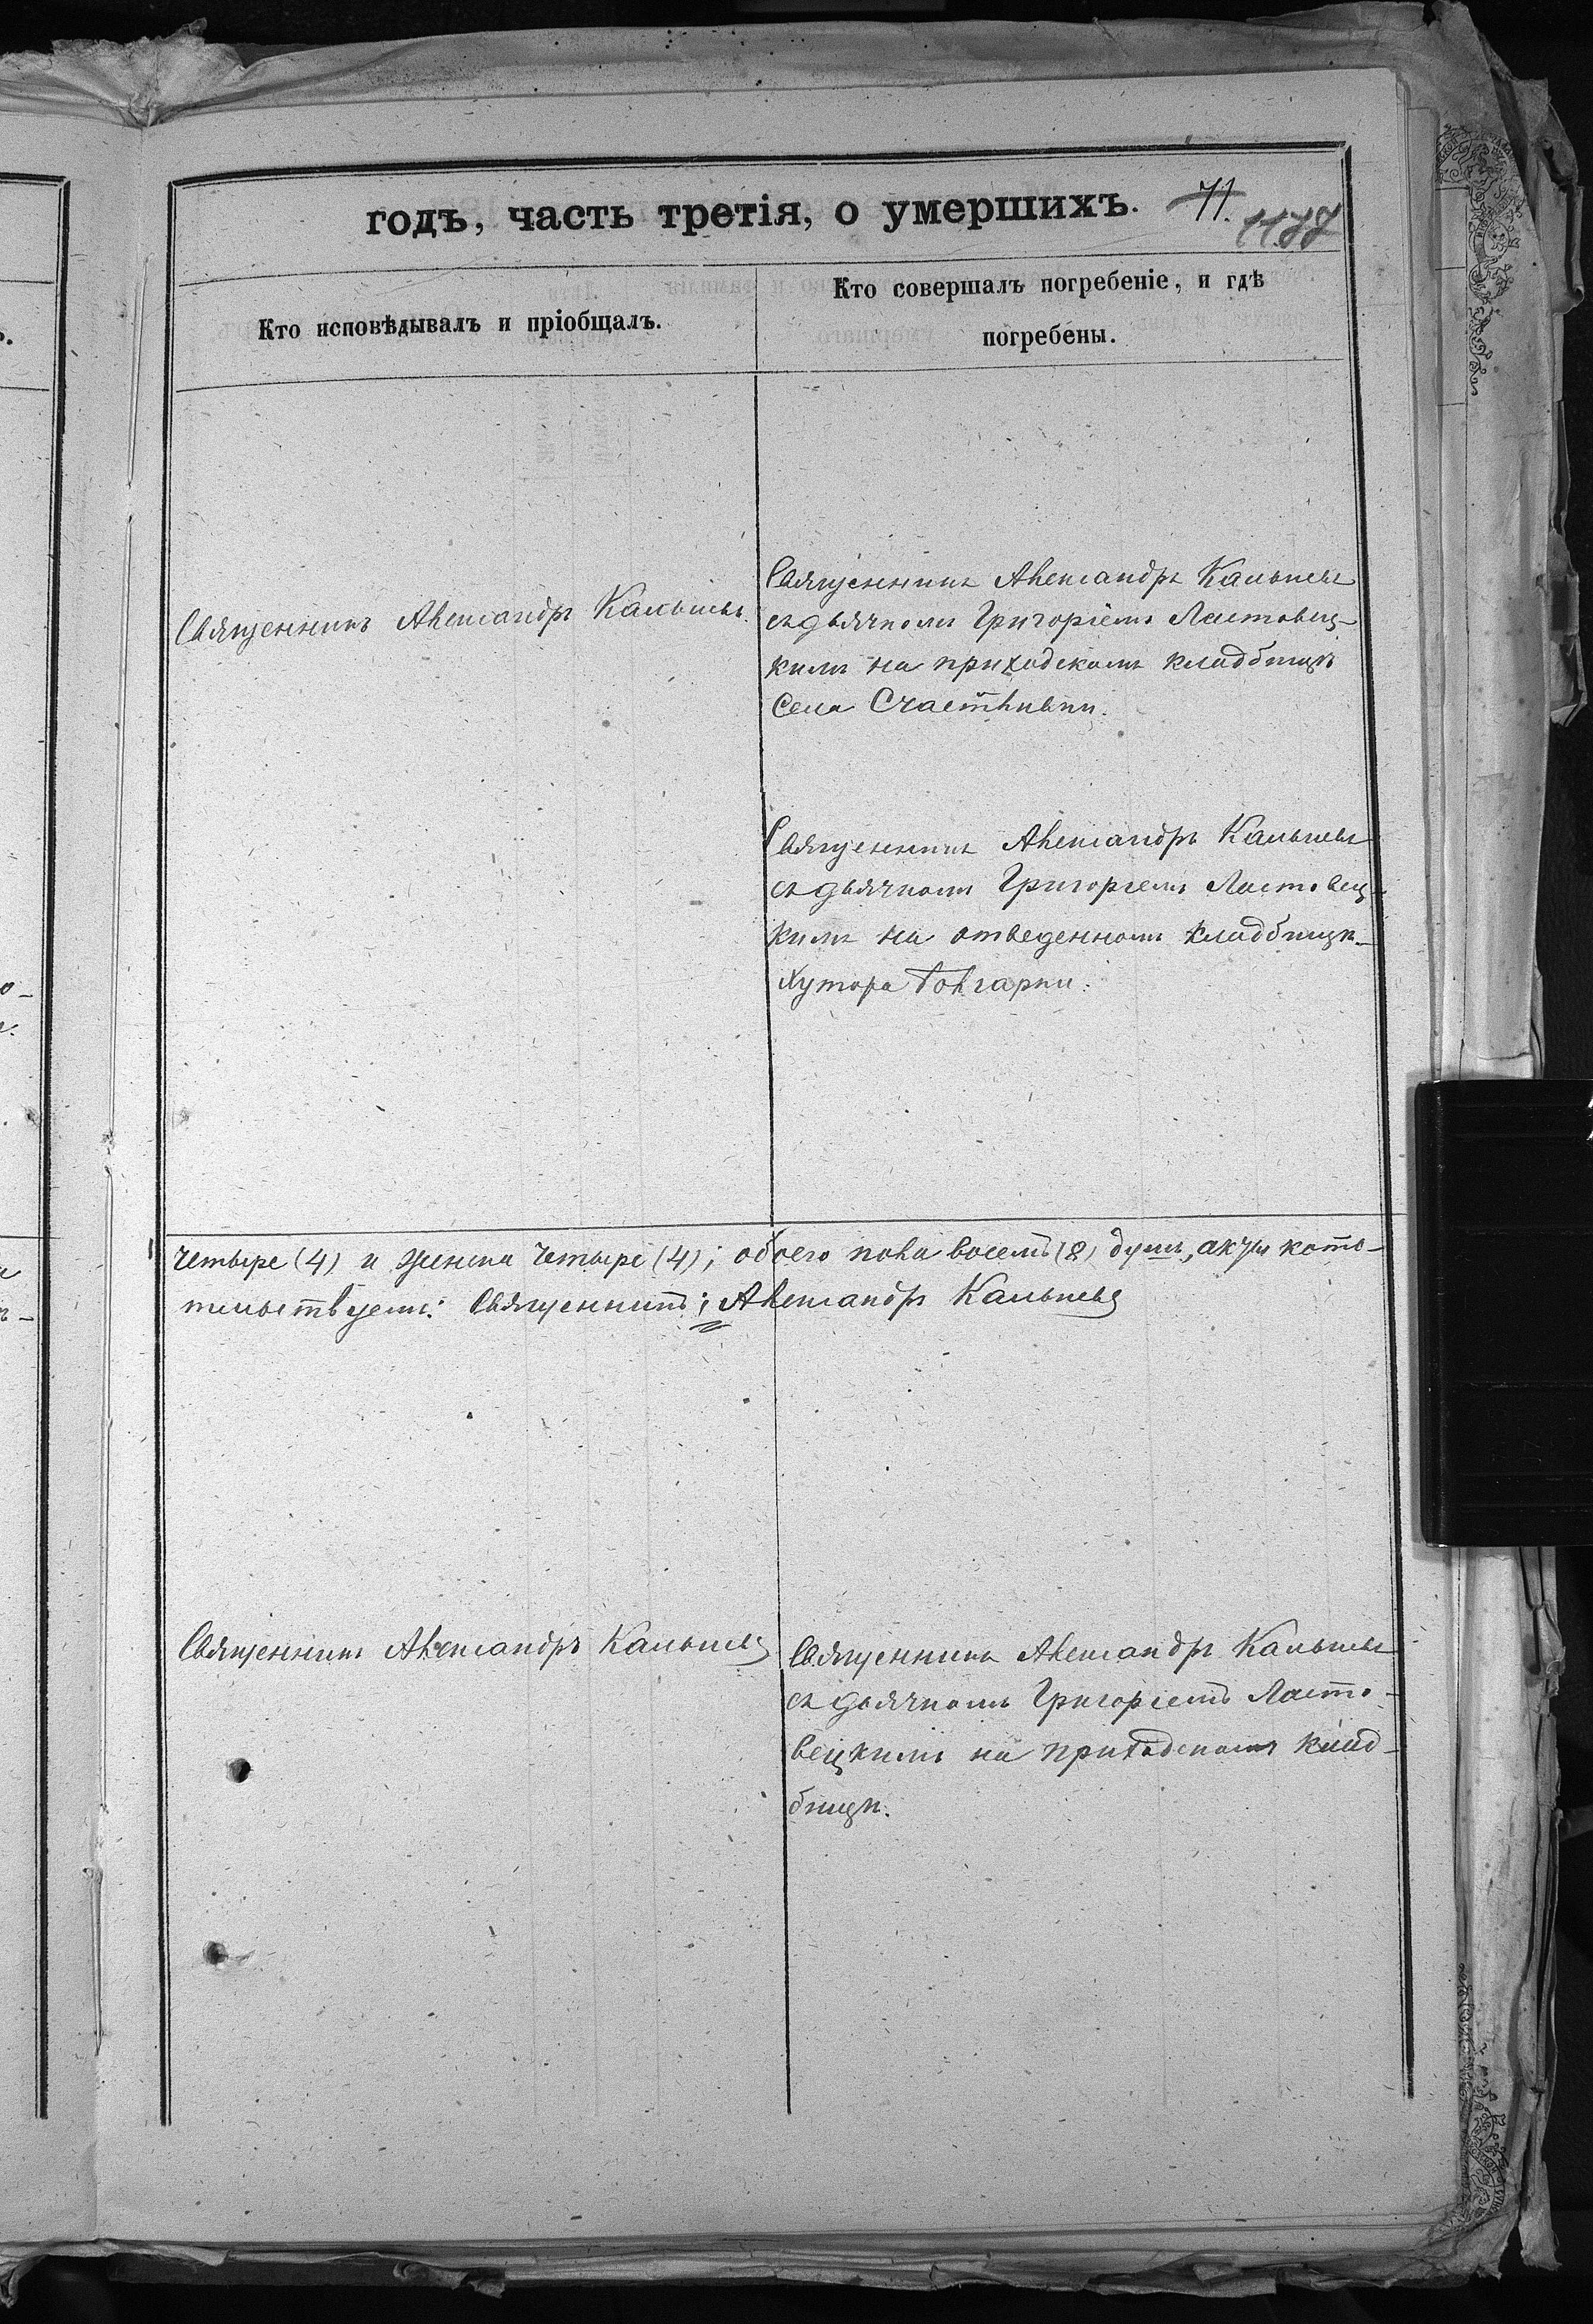 годъ, часть третія, о умершихъ.
71.
1177
Кто исповѣдывалъ и пріобщалъ.
Кто совершалъ погребеніе, и гдѣ
погребены.
Священникъ Александръ Кальневъ.
Священникъ Александръ Кальневъ
съ дьячкомъ Григоріемъ Ластовец-
кимъ на приходскомъ кладбищѣ
села Счастливки.
Священникъ Александръ Кальневъ
съ дьячкомъ Григоріемъ Ластовец-
кимъ на отведенномъ кладбищѣ
хутора
четыре (4) и женска четыре (4); обоего пола восемь (8) душъ, актъ кото-
тельствуемъ: Священникъ; Александръ Кальневъ
Священникъ Александръ Кальневъ
Священникъ Александръ Кальневъ
съ дьячкомъ Григоріемъ Ласто-
вецкимъ на приходскомъ клад-
бищѣ.